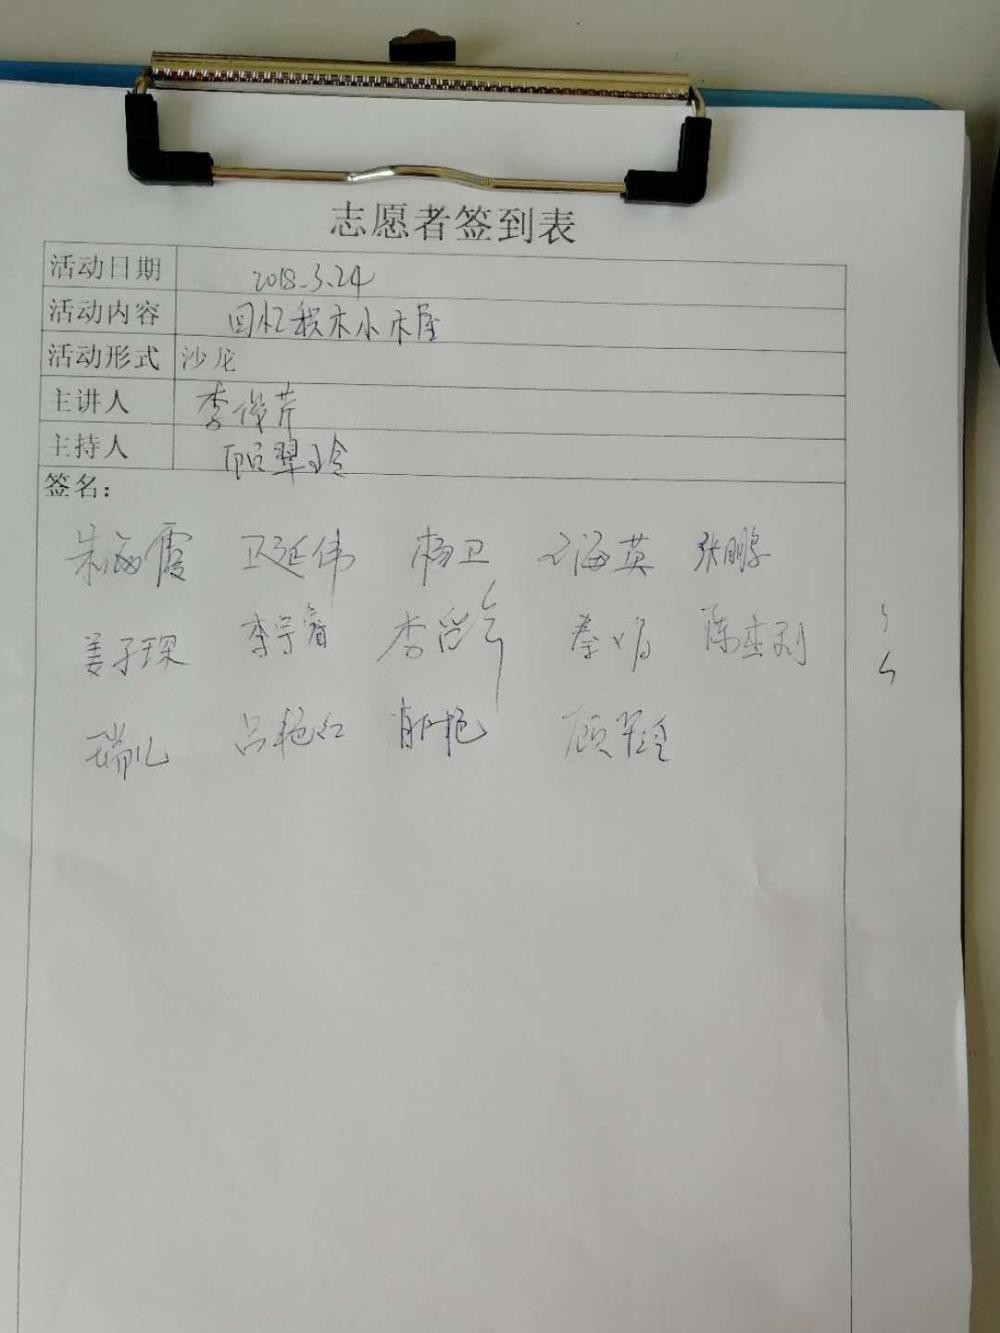 志愿者签到表
活动日期 2018.3.24
活动内容 回忆积木小木屋
活动形式 沙龙
主讲人 李俊芹
主持人 顾翠玲
签名：
朱海霞 卫延伟 杨卫 海英 张鹏
姜子琛 李宇睿 李 秦
瑞儿 吕艳红 艳 顾翠玲